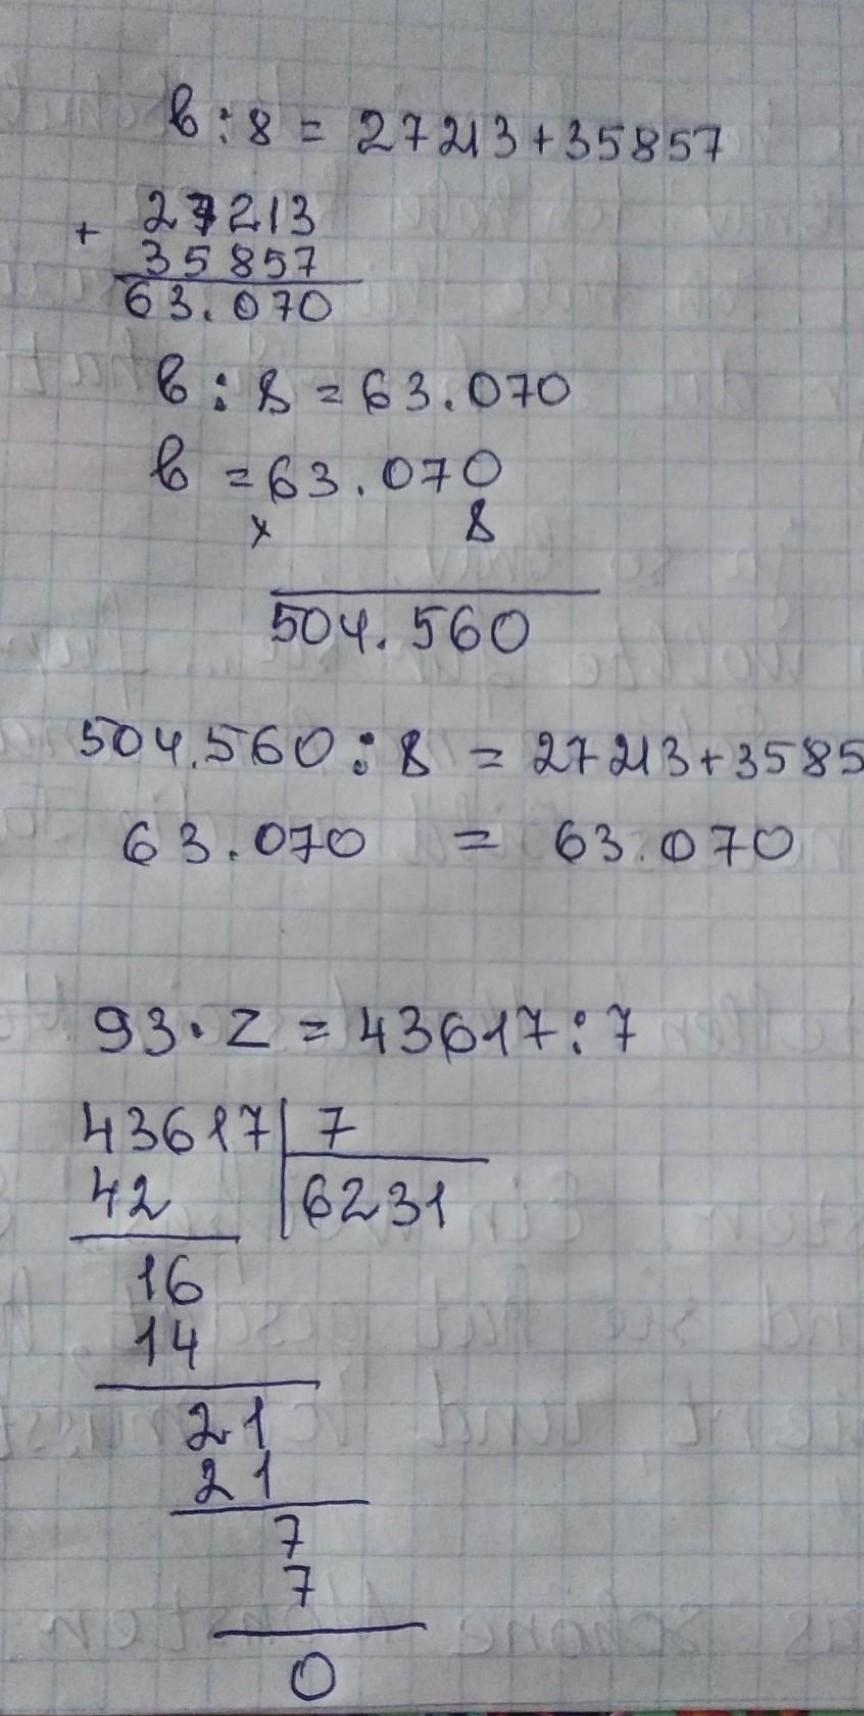 в : 8 = 27213 + 35857
+ 27213
35857
63.070
в : 8 = 63.070
в = 63.070
x 8
504.560
504.560 : 8 = 27213 + 3585
63.070 = 63.070
93 · z = 43617 : 7
43617 | 7
42 | 6231
16
14
21
21
7
7
0